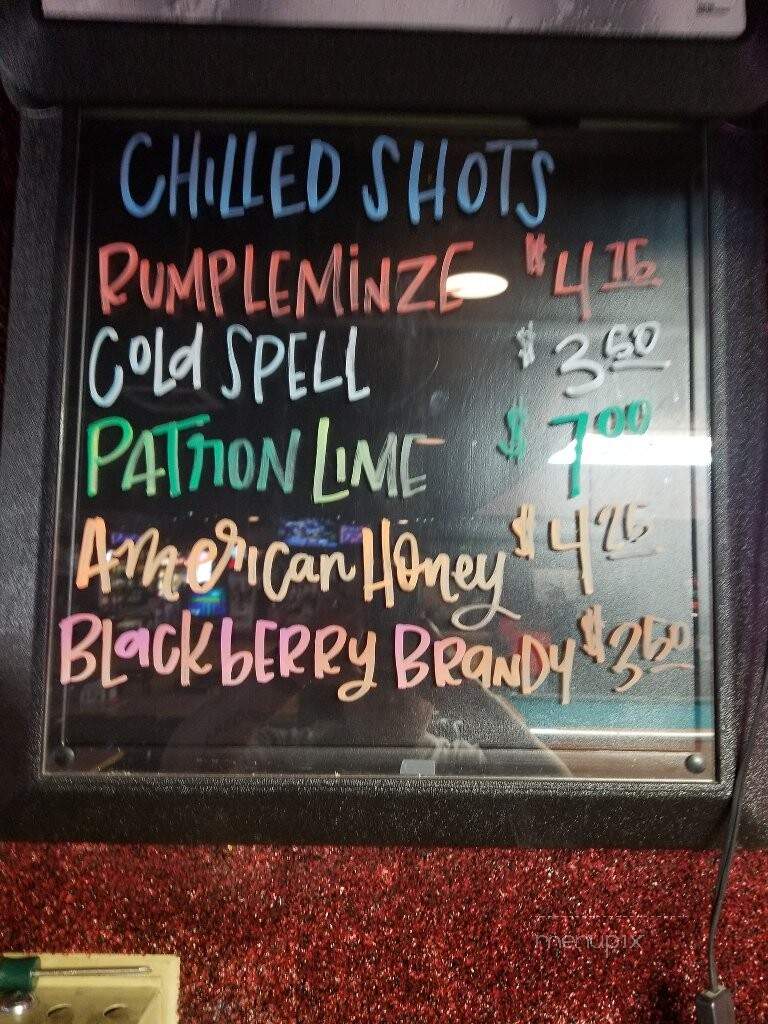 CHILLED SHOTS
RUMPLEMINZE $4.75
COLD SPELL $3.50
PATRON LIME $7.00
AMERICAN HONEY $4.25
BLACKBERRY BRANDY $3.50
menupix